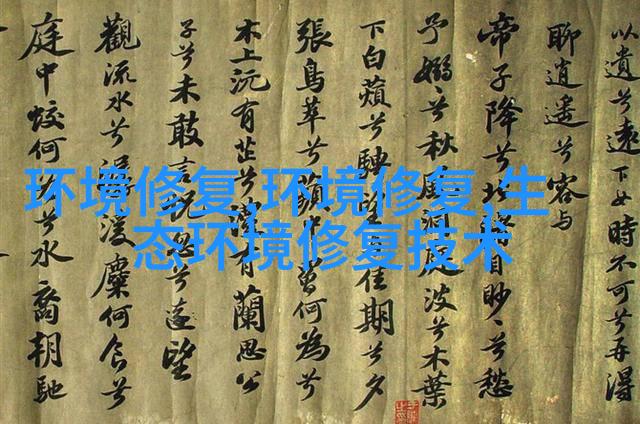 环境修复,环境修复,生
态环境修复技术
以遺兮遠下女時不可兮再得
聊逍遙兮容与
帝子降兮北目眇〻兮愁
予嫋〻兮秋風洞庭波兮木葉
下白蘋兮騁望佳期兮夕
張鳥萃兮蘋中罾何為兮
木上沅有芷兮澧有蘭思公
子兮未敢言怳兮遠望
觀流水兮潺湲麋何食兮
庭中蛟何兮水裔朝馳